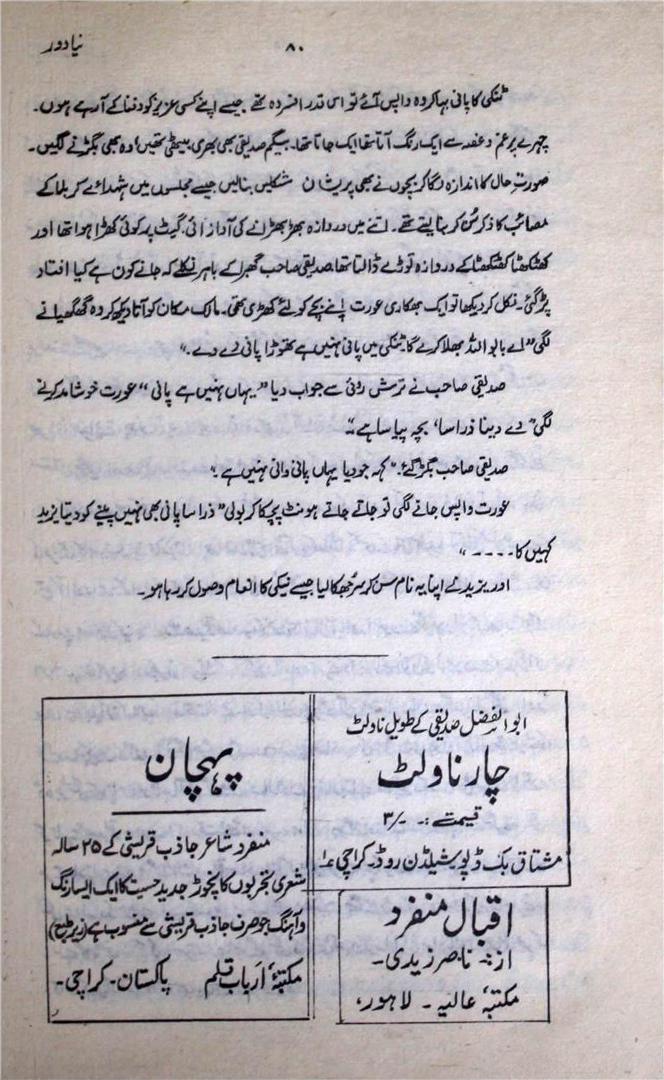 نیا دور
۸۰
ٹنکی کا پانی بہا کر وہ واپس آئے تو اس قدر افسردہ تھے جیسے اپنے کسی عزیز کو دفنا کے آ رہے ہوں۔
چہرے پر غم و غصہ سے ایک رنگ آتا تھا ایک جاتا تھا۔ بیگم صدیقی بھی بھری بیٹھی تھیں، وہ بھی بگڑنے لگیں۔
صورتِ حال کا اندازہ لگا کر بچوں نے بھی پریشان شکلیں بنالیں جیسے مجلسوں میں شہدائے کربلا کے
مصائب کا ذکر سُن کر بنا لیتے تھے۔ اتنے میں دروازہ بھڑبھڑانے کی آواز آئی۔ گیٹ پر کوئی کھڑا ہوا تھا اور
کھٹکھٹا کھٹکھٹا کے دروازہ توڑے ڈالتا تھا۔ صدیقی صاحب گھبرا کے باہر نکلے کہ جانے کون ہے کیا افتاد
پڑ گئی۔ نکل کر دیکھا تو ایک بھکاری عورت اپنے بچے کو لئے کھڑی تھی۔ مالک مکان کو آتا دیکھ کر وہ گھگھیانے
لگی ”اے بابو اللہ بھلا کرے گا۔ ٹنکی میں پانی نہیں ہے تھوڑا پانی دے دے۔“
صدیقی صاحب نے ترش روئی سے جواب دیا ”یہاں نہیں ہے پانی“ عورت خوشامد کرنے
لگی ”دے دینا ذرا سا، بچہ پیاسا ہے۔“
صدیقی صاحب بگڑ گئے۔ ”کہہ جو دیا یہاں پانی وانی نہیں ہے۔“
عورت واپس جانے لگی تو جاتے جاتے ہونٹ پچکا کر بولی ”ذرا سا پانی بھی نہیں پینے کو دیتا یزید
کہیں کا۔۔۔۔“
اور یزید نے اپنا یہ نام سن کر سر جھکا لیا جیسے نیکی کا انعام وصول کر رہا ہو۔
ابوالفضل صدیقی کے طویل ناولٹ
چار ناولٹ
قیمت :۔ ۳/۰
مشتاق بک ڈپو شیلڈن روڈ۔ کراچی ۱
اقبال منفرد
از :۔ ناصر زیدی۔
مکتبۂ عالیہ۔ لاہور،
پہچان
منفرد شاعر جاذب قریشی کے ۲۵ سالہ
شعری تجربوں کا نچوڑ جدید حسیت کا ایک ایسا رنگ
و آہنگ جو صرف جاذب قریشی سے منسوب ہے (زیر طبع)
مکتبۂ ارباب قلم پاکستان۔ کراچی۔